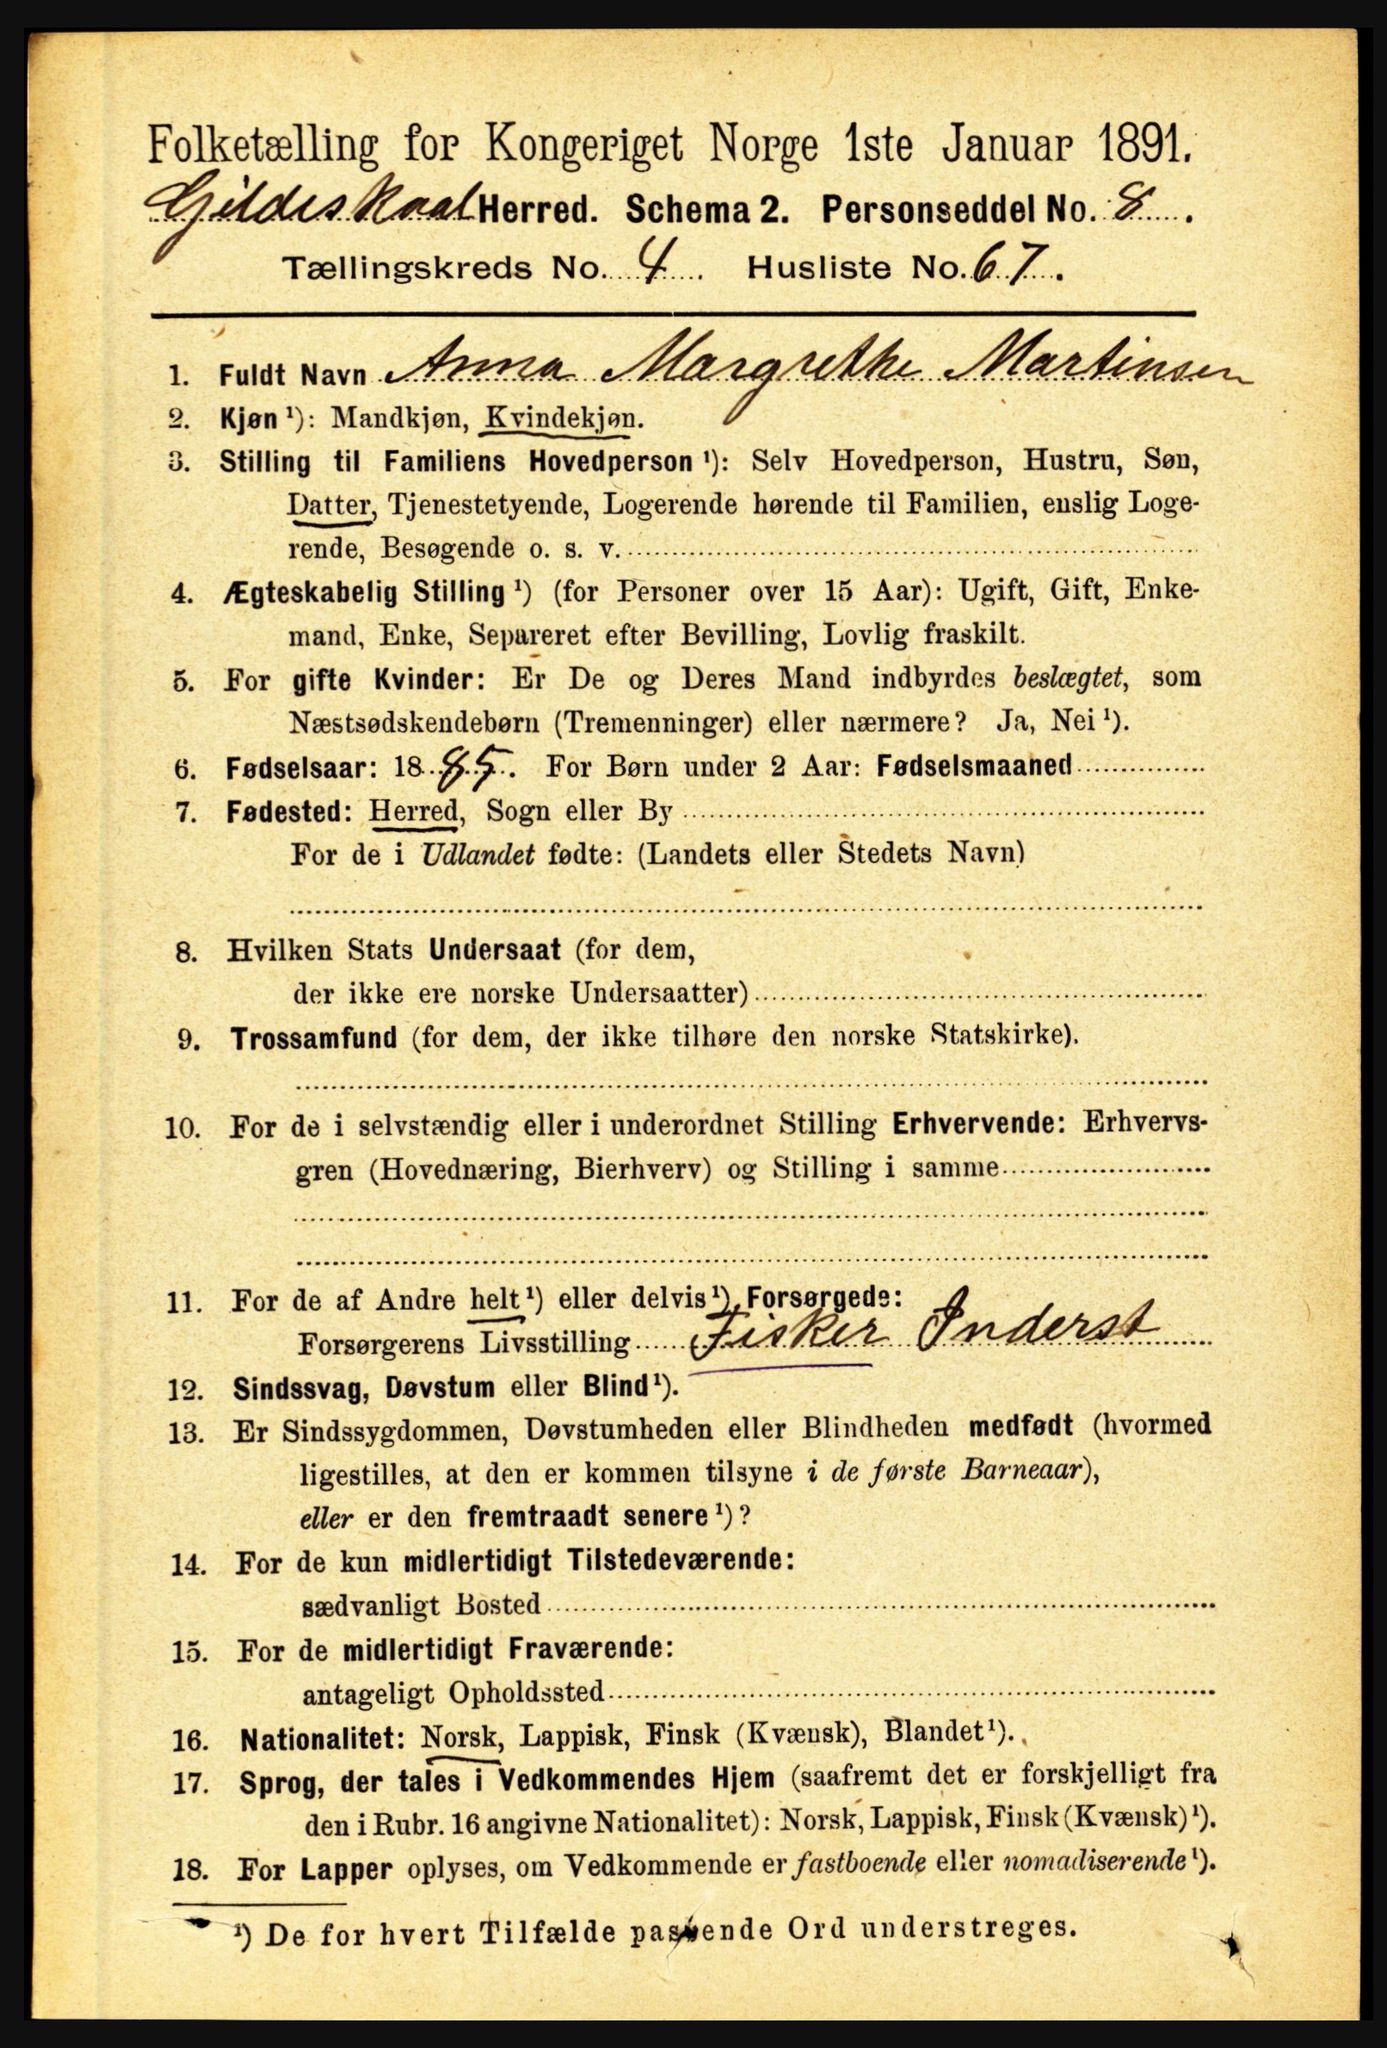 Folketælling for Kongeriget Norge 1ste Januar 1891.
Gildeskaal Herred. Schema 2. Personseddel No. 8.
Tællingskreds No. 4. Husliste No. 67.
1. Fuldt Navn Anna Margrethe Martinsen
2. Kjøn ¹): Mandkjøn, Kvindekjøn.
3. Stilling til Familiens Hovedperson ¹): Selv Hovedperson, Hustru, Søn,
Datter, Tjenestetyende, Logerende hørende til Familien, enslig Loge-
rende, Besøgende o. s. v.
4. Ægteskabelig Stilling ¹) (for Personer over 15 Aar): Ugift, Gift, Enke-
mand, Enke, Separeret efter Bevilling, Lovlig fraskilt.
5. For gifte Kvinder: Er De og Deres Mand indbyrdes beslægtet, som
Næstsødskendebørn (Tremenninger) eller nærmere? Ja, Nei ¹).
6. Fødselsaar: 1885. For Børn under 2 Aar: Fødselsmaaned
7. Fødested: Herred, Sogn eller By
For de i Udlandet fødte: (Landets eller Stedets Navn)
8. Hvilken Stats Undersaat (for dem,
der ikke ere norske Undersaatter)
9. Trossamfund (for dem, der ikke tilhøre den norske Statskirke).
10. For de i selvstændig eller i underordnet Stilling Erhvervende: Erhvervs-
gren (Hovednæring, Bierhverv) og Stilling i samme
11. For de af Andre helt ¹) eller delvis ¹) Forsørgede:
Forsørgerens Livsstilling Fisker Inderst
12. Sindssvag, Døvstum eller Blind ¹).
13. Er Sindssygdommen, Døvstumheden eller Blindheden medfødt (hvormed
ligestilles, at den er kommen tilsyne i de første Barneaar),
eller er den fremtraadt senere ¹)?
14. For de kun midlertidigt Tilstedeværende:
sædvanligt Bosted
15. For de midlertidigt Fraværende:
antageligt Opholdssted
16. Nationalitet: Norsk, Lappisk, Finsk (Kvænsk), Blandet ¹).
17. Sprog, der tales i Vedkommendes Hjem (saafremt det er forskjelligt fra
den i Rubr. 16 angivne Nationalitet): Norsk, Lappisk, Finsk (Kvænsk) ¹).
18. For Lapper oplyses, om Vedkommende er fastboende eller nomadiserende ¹).
¹) De for hvert Tilfælde passende Ord understreges.